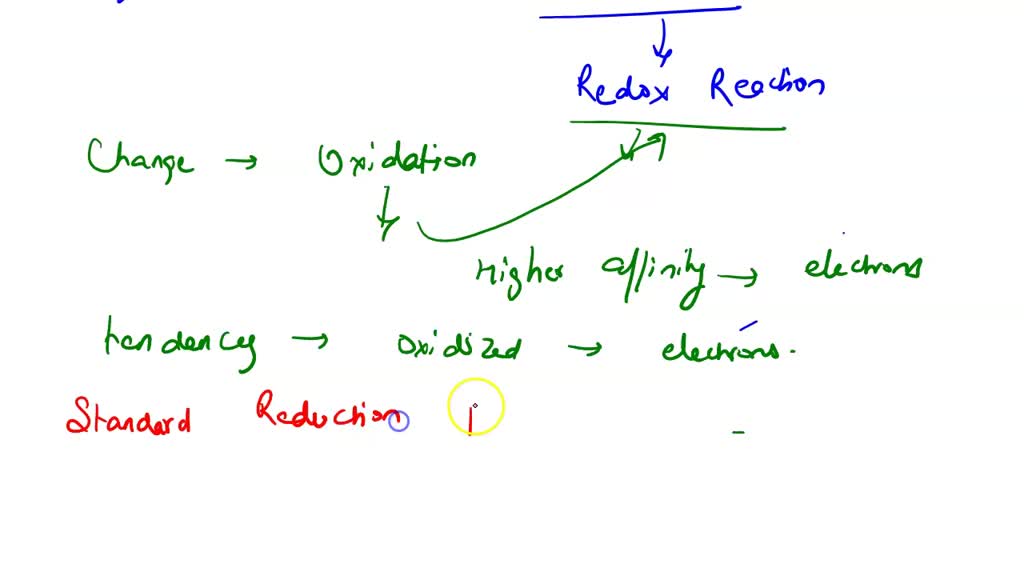 Redox Reaction
Change → Oxidation
Higher affinity → electrons
tendency → oxidized → electrons.
Standard Reduction